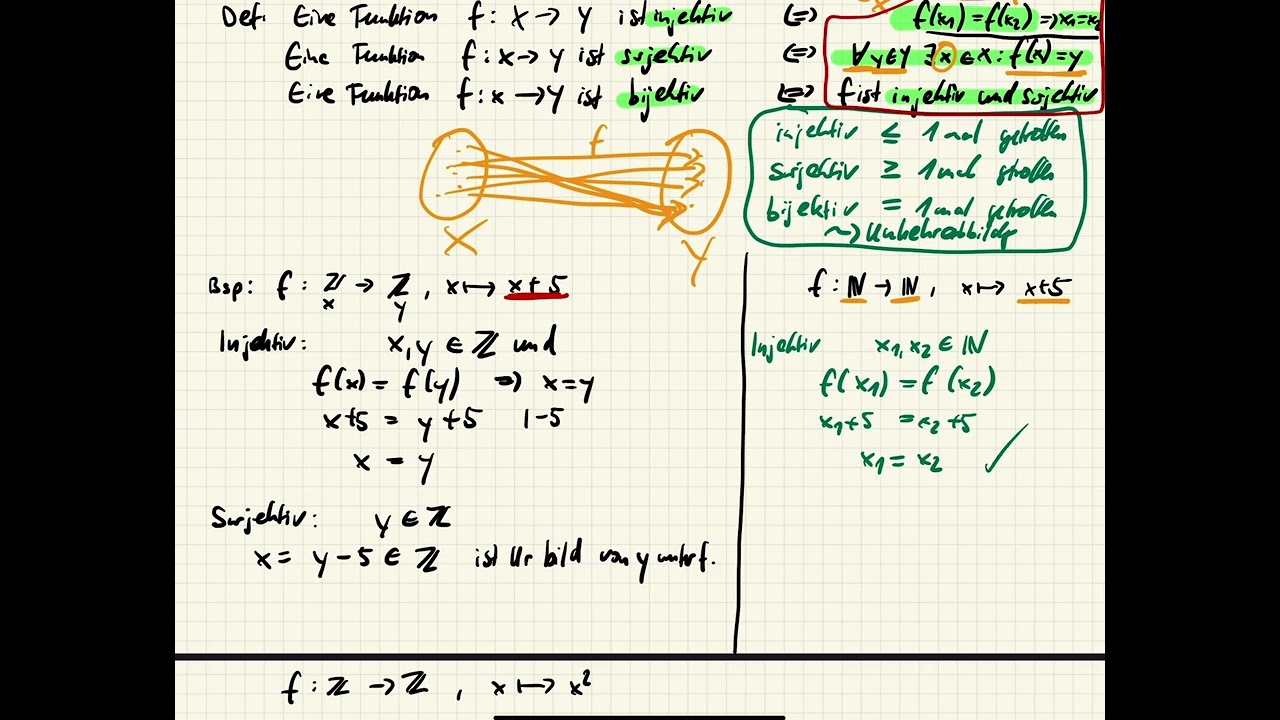 Def: Eine Funktion f: X → Y ist injektiv ⇔ f(x₁) = f(x₂) ⇒ x₁ = x₂
Eine Funktion f: X → Y ist surjektiv ⇔ ∀ y ∈ Y ∃ x ∈ X : f(x) = y
Eine Funktion f: X → Y ist bijektiv ⇔ f ist injektiv und surjektiv
f
X
Y
injektiv ≤ 1 mal getroffen
surjektiv ≥ 1 mal
bijektiv = 1 mal getroffen
Bsp: f: ℤ → ℤ, x ↦ x + 5
x y
Injektiv: x, y ∈ ℤ und
f(x) = f(y) ⇒ x = y
x + 5 = y + 5 | -5
x = y
Surjektiv: y ∈ ℤ
x = y - 5 ∈ ℤ ist Urbild von y unter f.
f: ℕ → ℕ, x ↦ x + 5
Injektiv x₁, x₂ ∈ ℕ
f(x₁) = f(x₂)
x₁ + 5 = x₂ + 5
x₁ = x₂ ✓
f: ℤ → ℤ, x ↦ x²